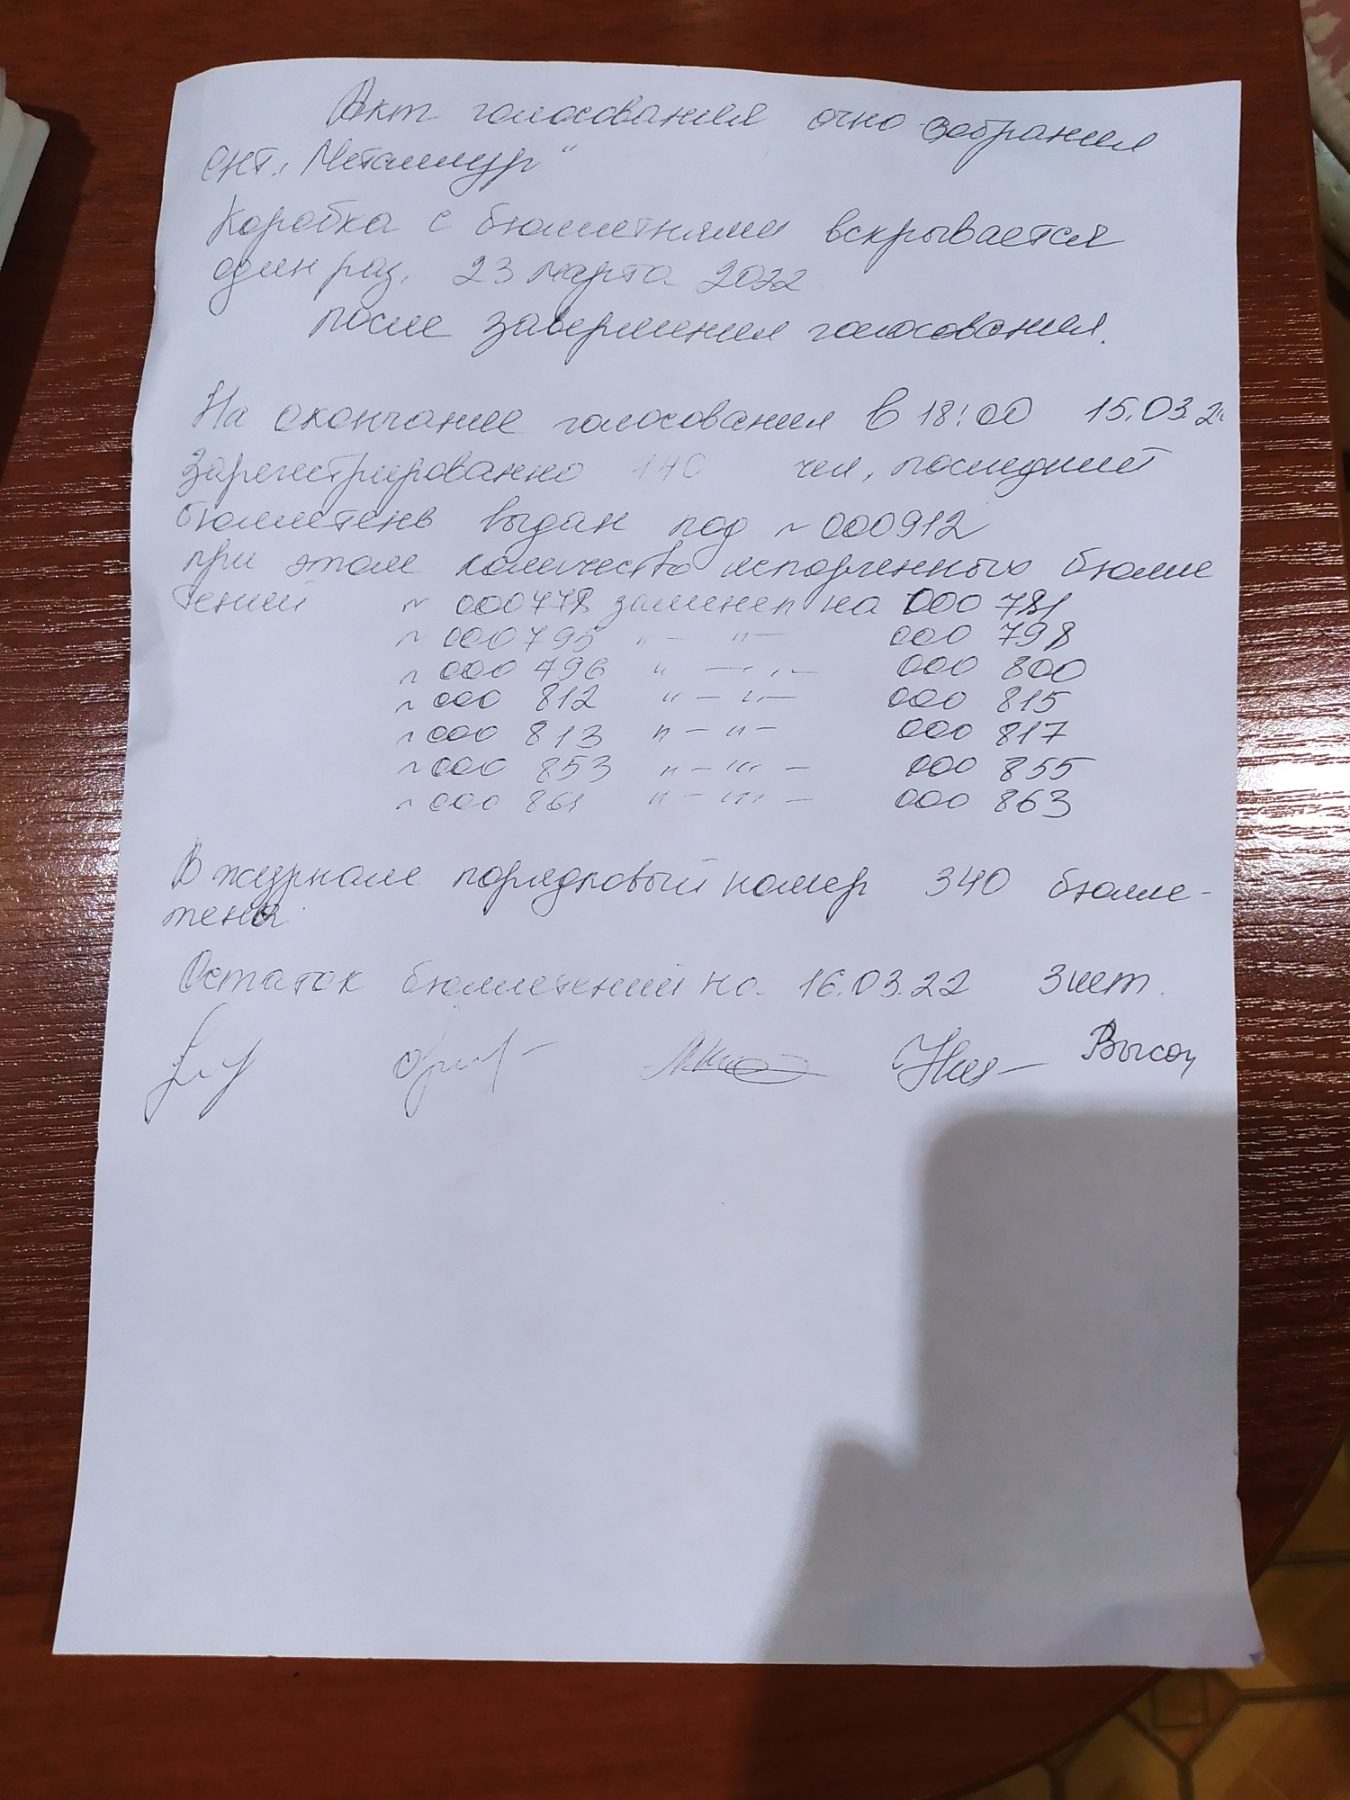 Акт голосования очно собрания
снт. "Металлург"
Коробка с бюллетнями вскрывается
один раз. 23 марта 2022
после завершения голосования.
На окончание голосования в 18:00 15.03.2
Зарегистрированно 140 чел, последний
бюллетень выдан под № 000912
при этом количество испорченных бюлле
теней № 000778 заменен на 000 781
№ 000795 " — " — 000 798
№ 000 796 " — " — 000 800
№ 000 812 " — " — 000 815
№ 000 813 " — " — 000 817
№ 000 853 " — " — 000 855
№ 000 861 " — " — 000 863
В журнале порядковый номер 340 бюлле-
теня
Остаток бюллетений на 16.03.22 3 шт.
Высоц